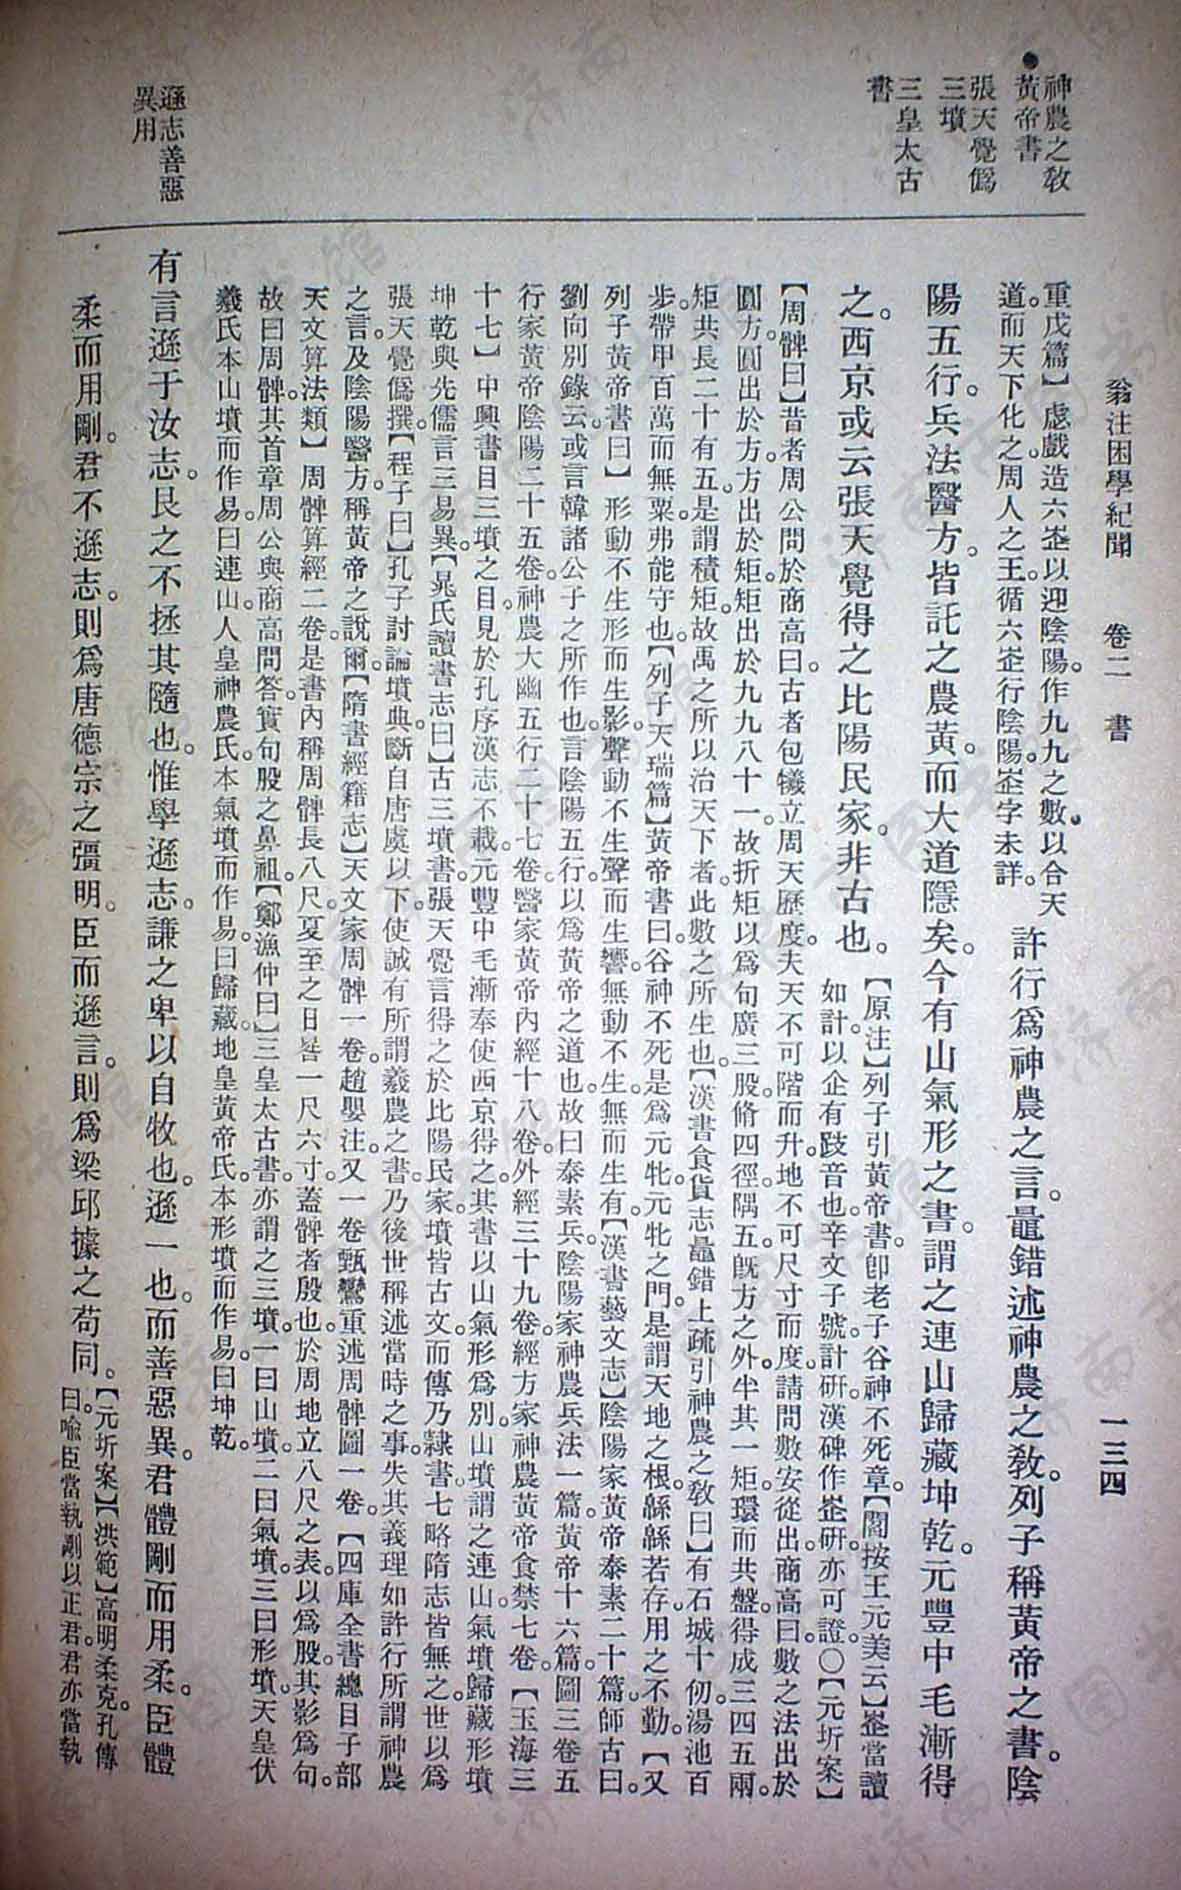 翁注困學紀聞　卷二　書　一三四
神農之敎
黃帝書
張天覺僞
三墳
三皇太古
書
遜志善惡
異用
重戊篇】虙戲造六峜以迎陰陽。作九九之數。以合天
道。而天下化之。周人之王。循六峜行陰陽。峜字未詳。
許行爲神農之言。鼂錯述神農之敎。列子稱黃帝之書。陰
陽五行。兵法醫方。皆託之農黃。而大道隱矣。今有山氣形之書。謂之連山歸藏坤乾。元豐中毛漸得
之。西京或云張天覺得之比陽民家。非古也。
【原注】列子引黃帝書。卽老子谷神不死章。【閻按王元美云】峜當讀
如計。以企有跂音也。辛文子號計研。漢碑作峜研。亦可證。○【元圻案】
【周髀曰】昔者周公問於商高曰。古者包犧立周天歷度。夫天不可階而升。地不可尺寸而度。請問數安從出。商高曰。數之法出於
圓方。圓出於方。方出於矩。矩出於九九八十一。故折矩以爲句廣三。股脩四。徑隅五。旣方之外。半其一矩。環而共盤。得成三四五。兩
矩共長二十有五。是謂積矩。故禹之所以治天下者。此數之所生也。【漢書食貨志鼂錯上疏引神農之敎曰】有石城十仞。湯池百
步。帶甲百萬而無粟。弗能守也。【列子天瑞篇】黃帝書曰。谷神不死。是爲元牝。元牝之門。是謂天地之根。緜緜若存。用之不勤。【又
列子黃帝書曰】形動不生形而生影。聲動不生聲而生響。無動不生無而生有。【漢書藝文志】陰陽家黃帝泰素二十篇。師古曰。
劉向別錄云。或言韓諸公子之所作也。言陰陽五行。以爲黃帝之道也。故曰泰素。兵陰陽家神農兵法一篇。黃帝十六篇。圖三卷。五
行家黃帝陰陽二十五卷。神農大幽五行二十七卷。醫家黃帝內經十八卷。外經三十九卷。經方家神農黃帝食禁七卷。【玉海三
十七】中興書目三墳之目。見於孔序。漢志不載。元豐中毛漸奉使西京得之。其書以山氣形爲別。山墳謂之連山。氣墳歸藏。形墳
坤乾。與先儒言三易異。【晁氏讀書志曰】古三墳書。張天覺言得之於比陽民家。墳皆古文。而傳乃隸書。七略隋志皆無之。世以爲
張天覺僞撰。【程子曰】孔子討論墳典。斷自唐虞以下。使誠有所謂羲農之書。乃後世稱述當時之事。失其義理。如許行所謂神農
之言。及陰陽醫方。稱黃帝之說爾。【隋書經籍志】天文家周髀一卷。趙嬰注。又一卷甄鸞重述。周髀圖一卷。【四庫全書總目子部
天文算法類】周髀算經二卷。是書內稱周髀長八尺。夏至之日晷一尺六寸。蓋髀者股也。於周地立八尺之表。以爲股。其影爲句。
故曰周髀。其首章周公與商高問答。實句股之鼻祖。【鄭漁仲曰】三皇太古書。亦謂之三墳。一曰山墳。二曰氣墳。三曰形墳。天皇伏
羲氏本山墳而作易。曰連山。人皇神農氏本氣墳而作易。曰歸藏。地皇黃帝氏本形墳而作易。曰坤乾。
有言遜于汝志。艮之不拯其隨也。惟學遜志。謙之卑以自牧也。遜一也。而善惡異。君體剛而用柔。臣體
柔而用剛。君不遜志。則爲唐德宗之彊明。臣而遜言。則爲梁邱據之苟同。
【元圻案】【洪範】高明柔克。孔傳
曰。喩臣當執剛以正君。君亦當執